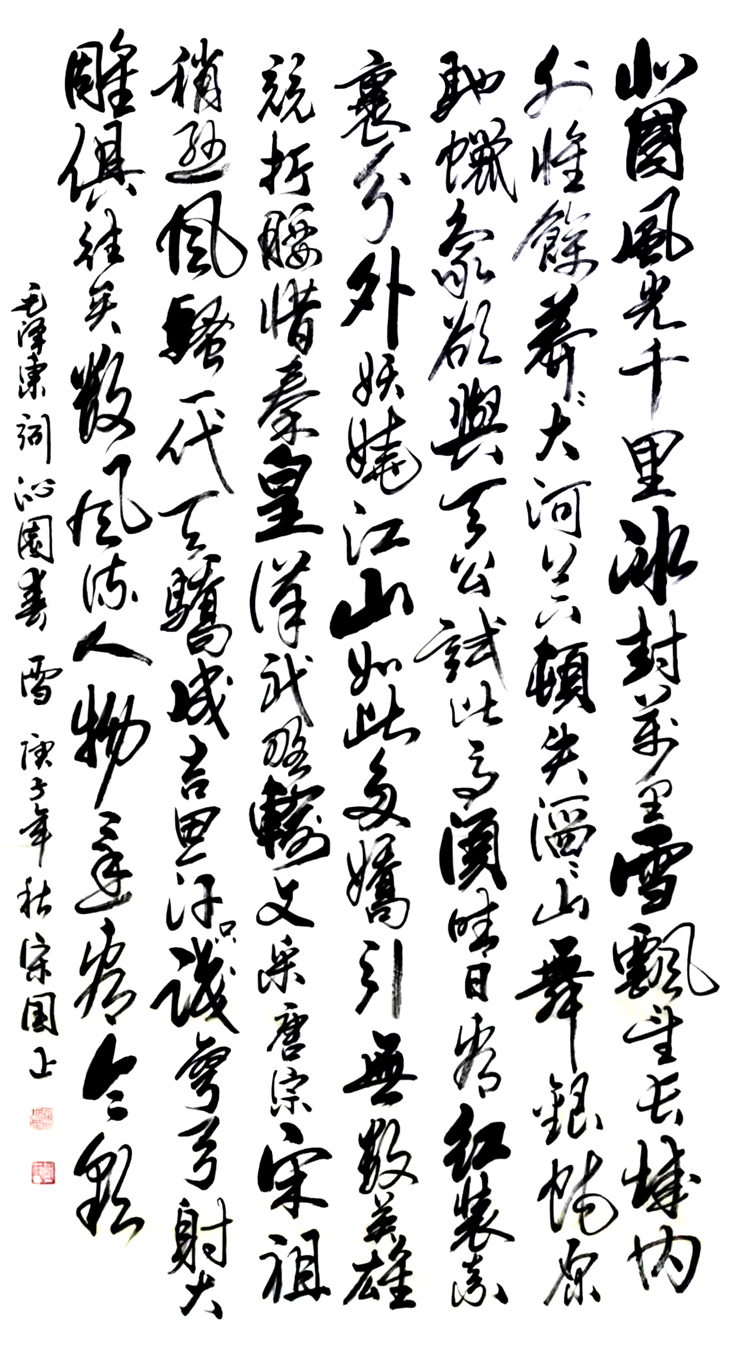 北國風光千里冰封萬里雪飄望长城内
外惟餘莽〻大河上下頓失滔〻山舞銀蛇原
馳蠟象欲與天公試比高須晴日看红装素
裹分外妖嬈江山如此多嬌引無數英雄
競折腰惜秦皇漢武略輸文采唐宗宋祖
稍遜風騷一代天驕成吉思汗只識彎弓射大
雕俱往矣數風流人物還看今朝
毛澤東詞沁園春雪庚子年秋宋国